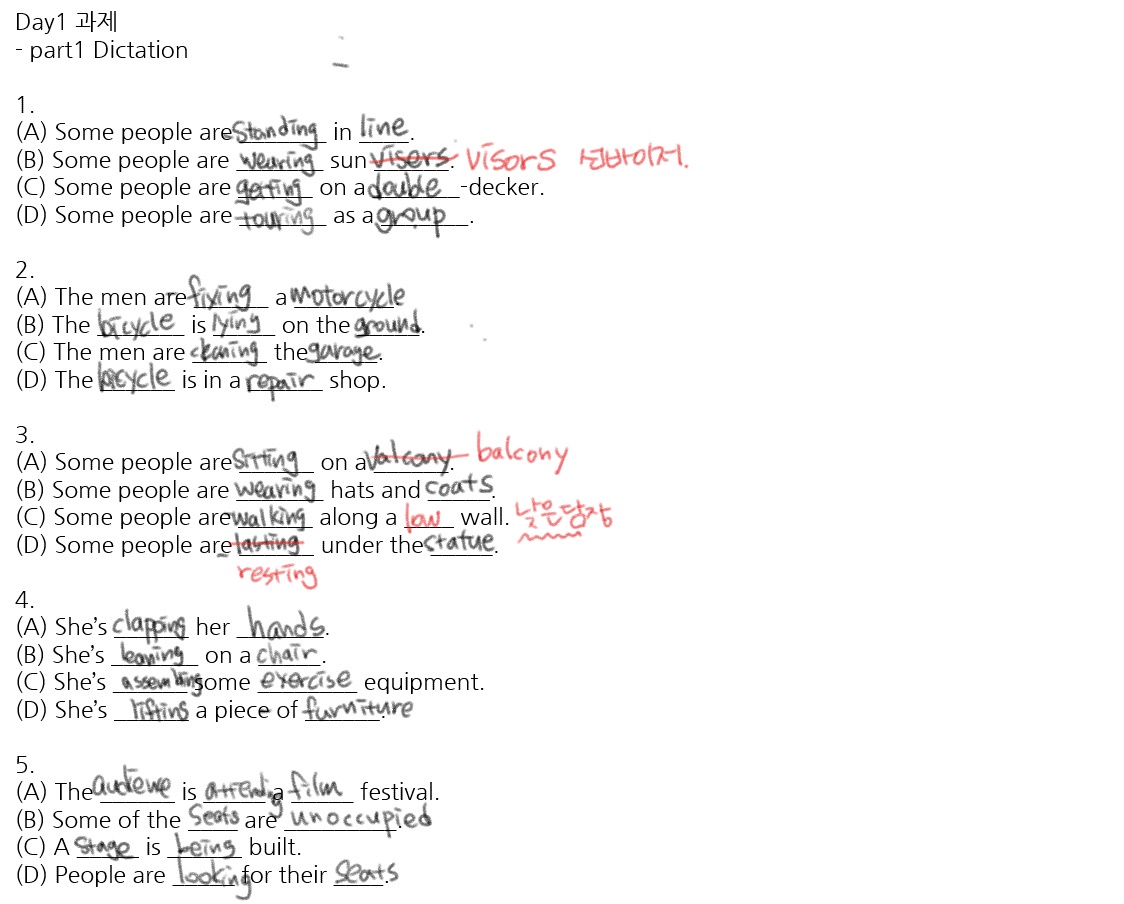 Day1 과제
- part1 Dictation
1.
(A) Some people are standing in line.
(B) Some people are wearing sun visers. visors 선바이저.
(C) Some people are getting on a double-decker.
(D) Some people are touring as a group.
2.
(A) The men are fixing a motorcycle
(B) The bicycle is lying on the ground.
(C) The men are cleaning the garage.
(D) The bicycle is in a repair shop.
3.
(A) Some people are sitting on a valcony. balcony
(B) Some people are wearing hats and coats.
(C) Some people are walking along a low wall. 낮은담장
(D) Some people are lasting under the statue.
resting
4.
(A) She's clapping her hands.
(B) She's leaning on a chair.
(C) She's assembling some exercise equipment.
(D) She's lifting a piece of furniture.
5.
(A) The audience is attending a film festival.
(B) Some of the seats are unoccupied.
(C) A stage is being built.
(D) People are looking for their seats.